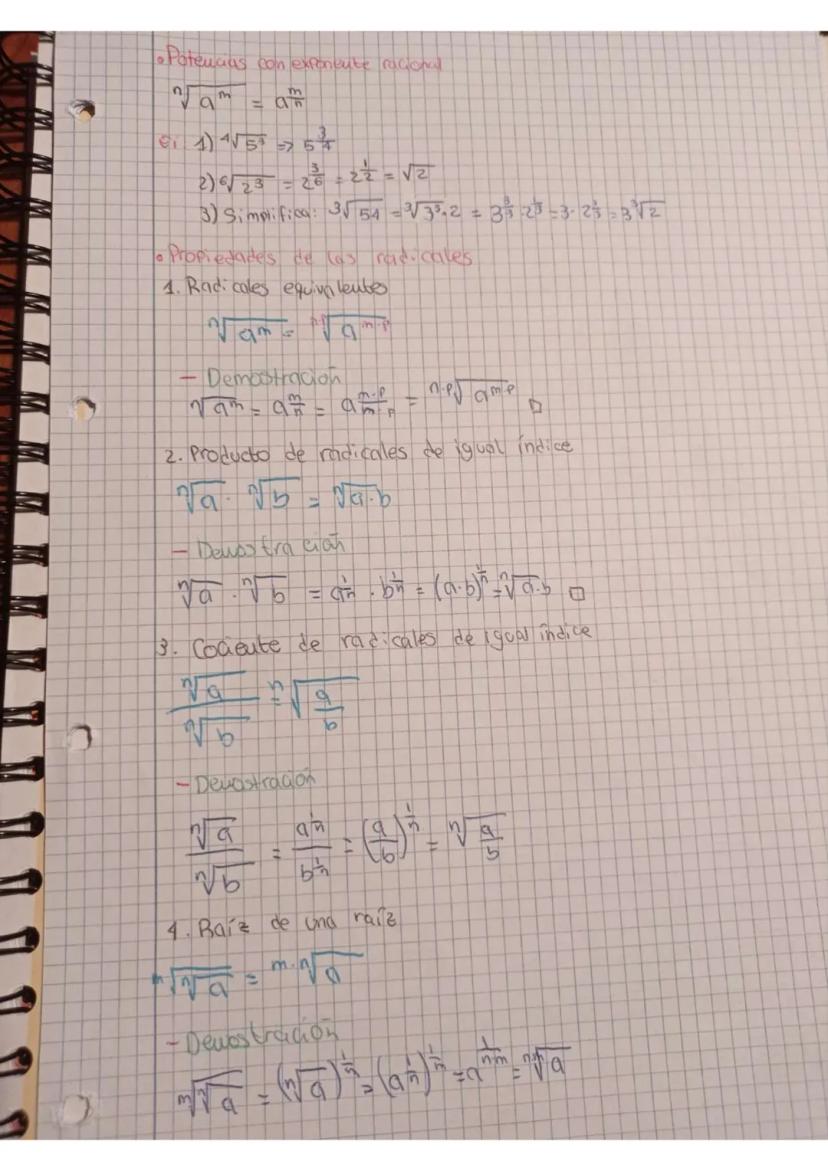 • Potencias con exponente racional
ⁿ√(a^m) = a^(m/n)
Ej 1) ⁴√(5³) => 5^(3/4)
2) ⁶√(2³) = 2^(3/6) = 2^(1/2) = √2
3) Simplifica: ³√54 = ³√(3³·2) = 3^(3/3)·2^(1/3) = 3·2^(1/3) = 3 ³√2
• Propiedades de los radicales
1. Radicales equivalentes
ⁿ√(a^m) = ⁿ·ᵖ√(a^(m·p))
- Demostración
ⁿ√(a^m) = a^(m/n) = a^(m·p/m·p) = ⁿ·ᵖ√(a^(m·p)) □
2. Producto de radicales de igual índice
ⁿ√a · ⁿ√b = ⁿ√(a·b)
- Demostración
ⁿ√a · ⁿ√b = a^(1/n) · b^(1/n) = (a·b)^(1/n) = ⁿ√(a·b) □
3. Cociente de radicales de igual índice
ⁿ√a / ⁿ√b = ⁿ√(a/b)
- Demostración
ⁿ√a / ⁿ√b = a^(1/n) / b^(1/n) = (a/b)^(1/n) = ⁿ√(a/b)
4. Raíz de una raíz
ᵐ√(ⁿ√a) = ᵐ·ⁿ√a
- Demostración
ᵐ√(ⁿ√a) = (ⁿ√a)^(1/m) = (a^(1/n))^(1/m) = a^(1/n·m) = ⁿ·ᵐ√a